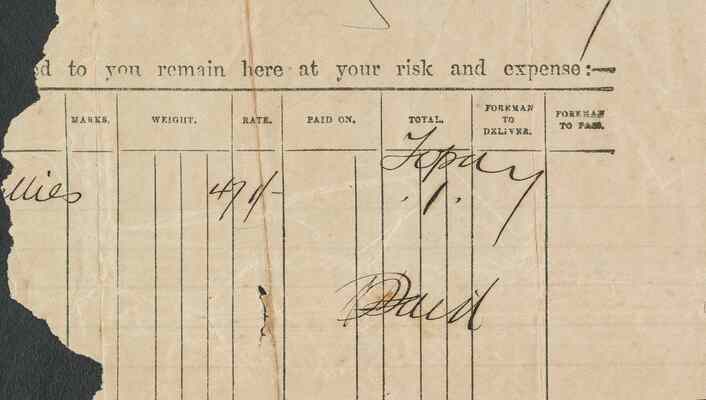 d to you remain here at your risk and expense:—
MARKS. WEIGHT. RATE. PAID ON. TOTAL. FOREMAN TO DELIVER. FOREMAN TO PASS.
To pay
47 1/- . 1 .
Paid